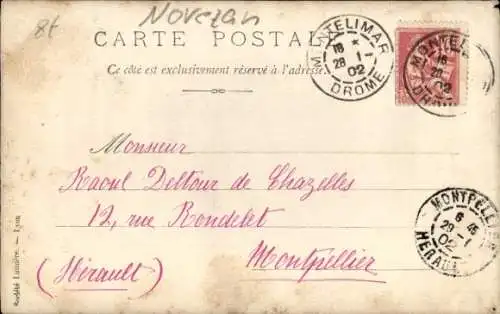 8f
Novezan
CARTE POSTALE
Ce côté est exclusivement réservé à l'adresse
MONTELIMAR
18 *
28 -1
02
DROME
MONTEL
18
28
02
DRO
Monsieur
Raoul Deltour de Chazelles
12, rue Rondelet
Montpellier
(Hérault)
MONTPELLIER
6 45
29 -1
02
HERAULT
Société Lumière. — Lyon